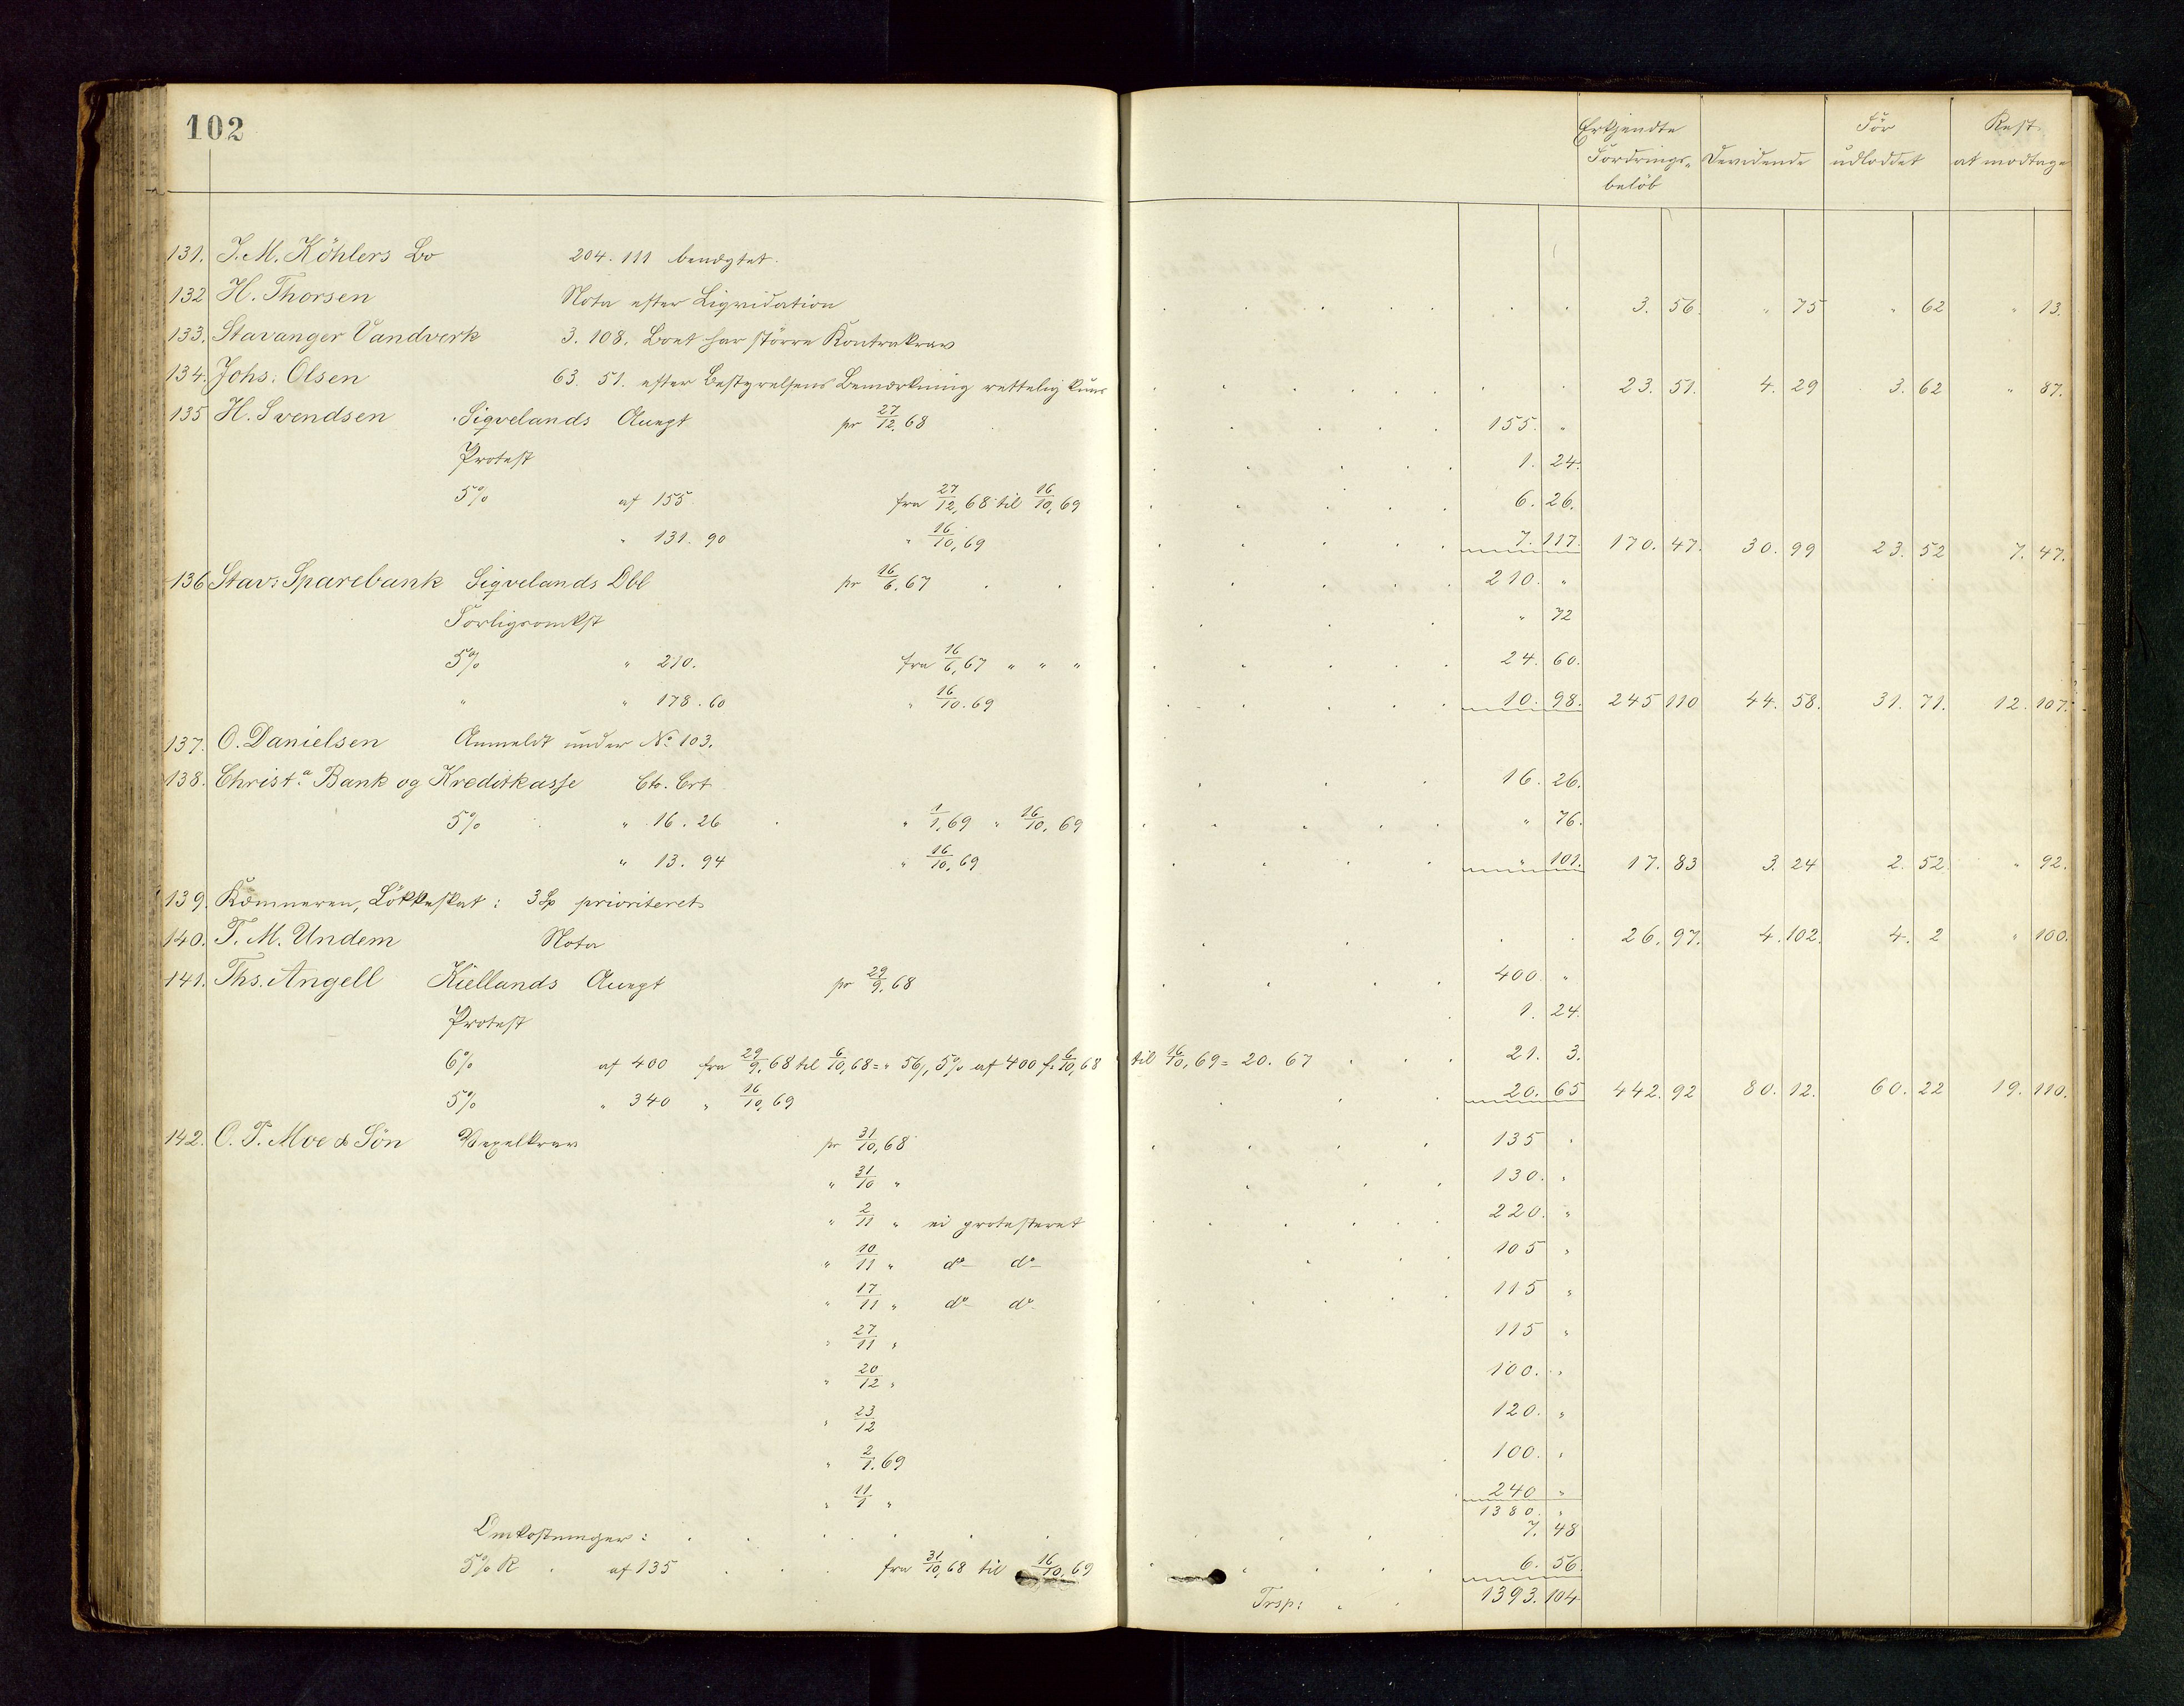 102
Erkjendte Fordrings- beløb Dividende Før udloddet Rest at modtage
131. J. M. Köhlers Bo 204. 111 benægtet.
132 H. Thorsen Nota efter Liqvidation 3. 56. " 75 " 62 " 13.
133. Stavanger Vandverk 3. 108. Boet har större Kontrakrav
134. Johs. Olsen 63. 51. efter Bestyrelsens Bemærkning rettelig kun 23. 51. 4. 29 3. 62 " 87.
135 H. Svendsen Sigvelands Accpt pr 27/12. 68 155. "
Protest 1. 24.
5% af 155 fra 27/12, 68 til 16/10, 69 6. 26.
" 131. 90 " 16/10, 69 7. 117. 170. 47. 30. 99 23. 52 7. 47.
136 Stavs Sparebank Sigvelands Obl pr 16/6. 67 210. "
Forligsomkst " 72
5% " 210. fra 16/6, 67 " " " 24. 60.
" " 178. 60 " 16/10. 69 10. 98. 245 110 44. 58. 31. 71. 12. 107.
137. O. Danielsen Anmeldt under No 103.
138. Christa. Bank og Kreditkasse Cto. Crt 16. 26.
5% " 16. 26 " 1/1, 69 " 16/10. 69 " 76.
" 13. 94 " 16/10, 69 " 101. 17. 83 3. 24 2. 52 " 92.
139. Kæmneren, Lökkeskat: 3 Sp prioriteret
140. T. M. Undem Nota 26. 97. 4. 102. 4. 2 " 100.
141. Ths. Angell Kiellands Accpt pr 29/9. 68 400. "
Protest 1. 24.
6% af 400 fra 29/9, 68 til 6/10, 68 = " 56/, 5% af 400 f. 6/10, 68 til 16/10, 69 = 20. 67 21. 3.
5% " 340 " 16/10, 69 20. 65 442. 92 80. 12. 60. 22 19. 110.
142. O. T. Moe & Sön Vexelkrav pr 31/10, 68 135 "
" 31/10 " 130. "
" 2/11 " ei protesteret 220. "
" 10/11 " do do 105 "
" 17/11 " do do 115 "
" 27/11 " 115 "
" 20/12 " 100. "
" 23/12 120. "
" 2/1. 69 100. "
" 11/1 " 240 "
1380. "
Omkostninger: 7. 48
5% R af 135 fra 31/10, 68 til 16/10, 69 6. 56.
Trsp: 1393. 104